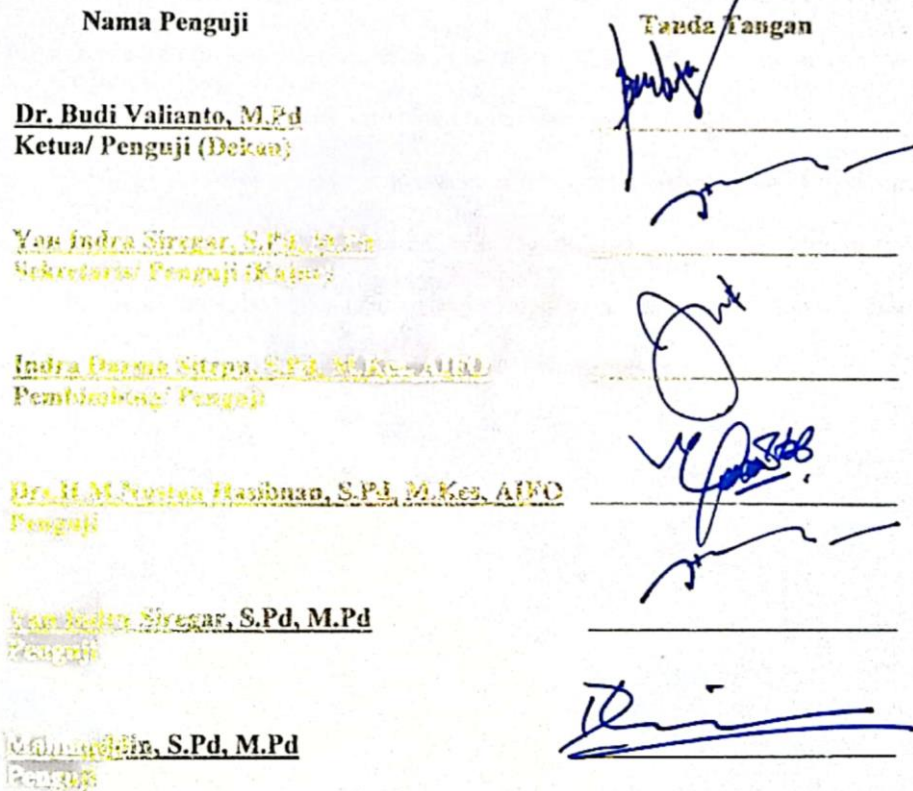 Nama Penguji Tanda Tangan
Dr. Budi Valianto, M.Pd
Ketua/ Penguji (Dekan)
Yan Indra Siregar, S.Pd,
Sekretaris/ Penguji
Indra Darma Sitepu, S.Pd,
Pembimbing/ Penguji
Hasibuan, S.Pd, M.Kes, AIFO
Penguji
Yan Indra Siregar, S.Pd, M.Pd
Penguji
S.Pd, M.Pd
Penguji